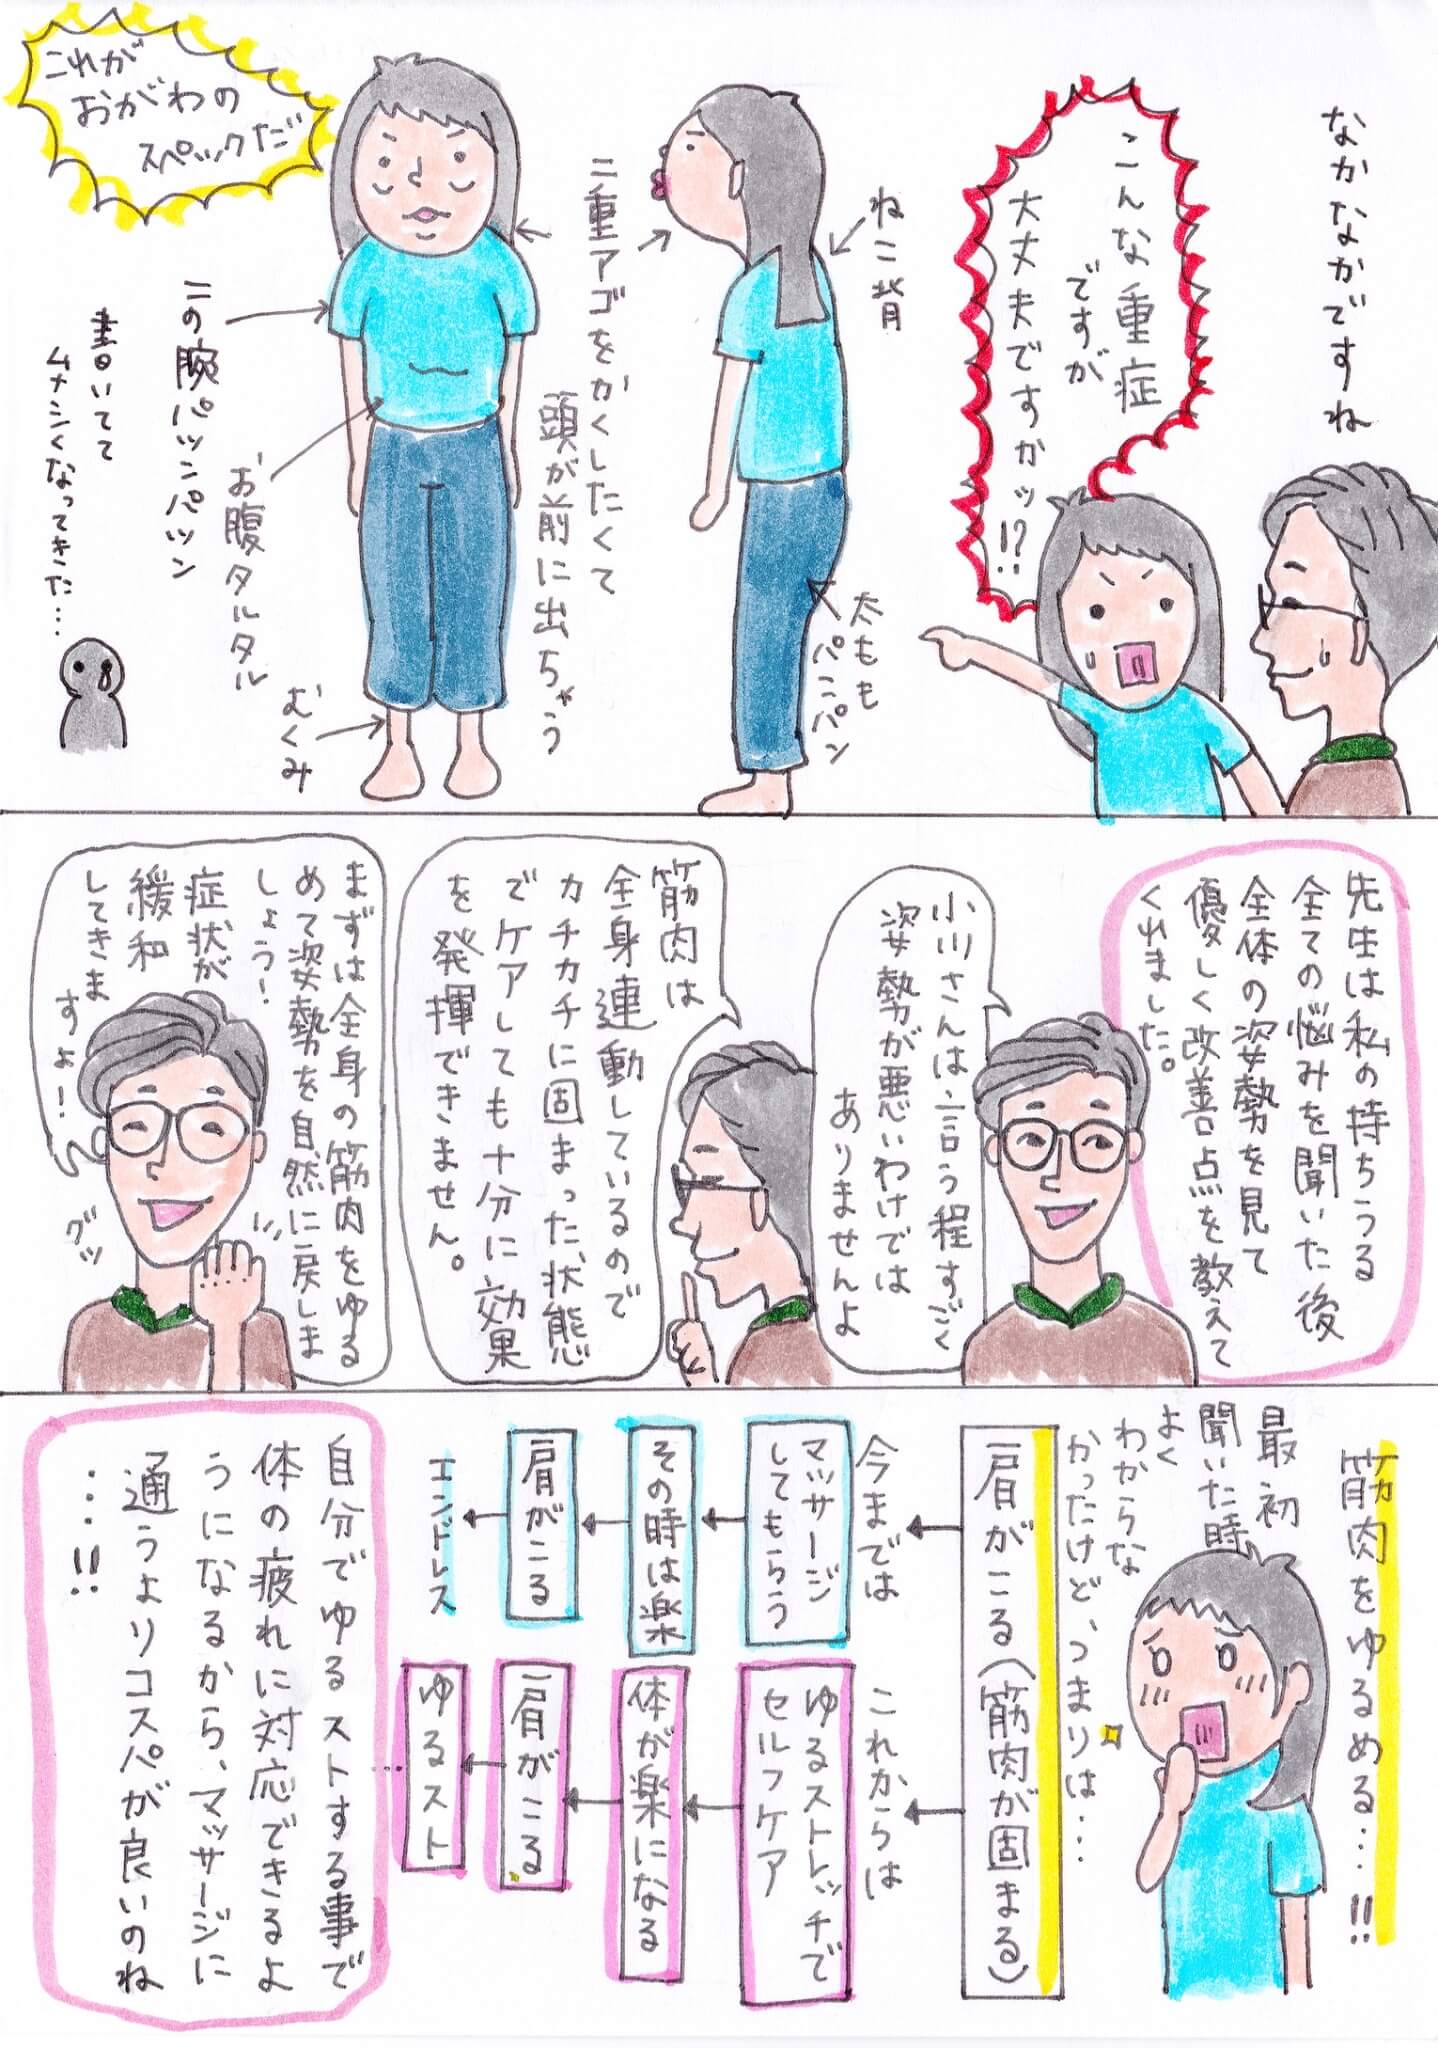 なかなかですね
こんな重症
ですが
大丈夫ですかッ!?
ねこ背
太もも
パンパン
二重アゴをかくしたくて
頭が前に出ちゃう
これが
おがわの
スペックだ
二の腕パツンパツン
お腹タルタル
むくみ
書いてて
ムナシくなってきた…
先生は私の持ちうる
全ての悩みを聞いた後
全体の姿勢を見て
優しく改善点を教えて
くれました。
小川さんは言う程すごく
姿勢が悪いわけでは
ありませんよ
筋肉は
全身連動しているので
カチカチに固まった状態
でケアしても十分に効果
を発揮できません。
まずは全身の筋肉をゆる
めて姿勢を自然に戻しま
しょう!
症状が
緩和
してきま
すよ!
グッ
筋肉をゆるめる…!!
最初
聞いた時
よく
わからな
かったけど、つまりは…
肩がこる(筋肉が固まる)
今までは
マッサージ
してもらう
その時は楽
肩がこる
エンドレス
これからは
ゆるストレッチで
セルフケア
体が楽になる
肩がこる
ゆるスト
自分でゆるストする事で
体の疲れに対応できるよ
うになるから、マッサージに
通うよりコスパが良いのね
…!!